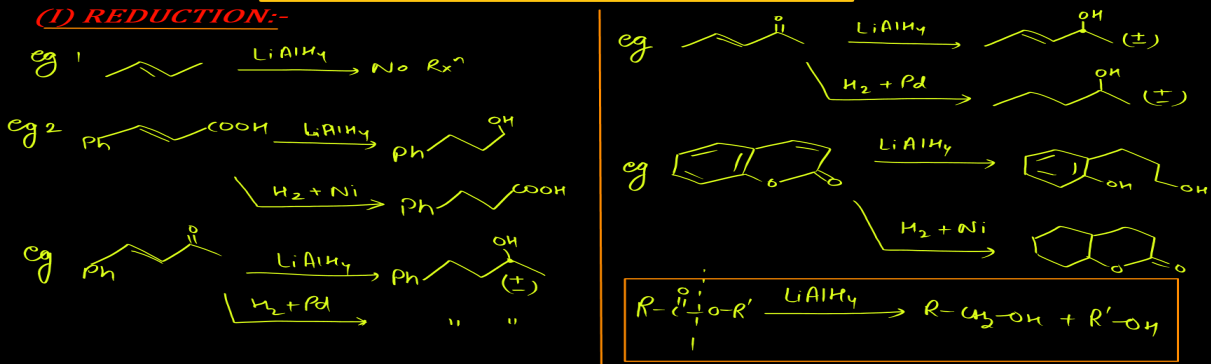 (I) REDUCTION:-
eg 1 LiAlH4 No Rxn
eg 2 Ph COOH LiAlH4 Ph OH
H2 + Ni Ph COOH
eg Ph O LiAlH4 Ph OH (±)
H2 + Pd " "
eg O LiAlH4 OH (±)
H2 + Pd OH (±)
eg O O LiAlH4 OH OH
H2 + Ni O O
R-C-O-R' O LiAlH4 R-CH2-OH + R'-OH